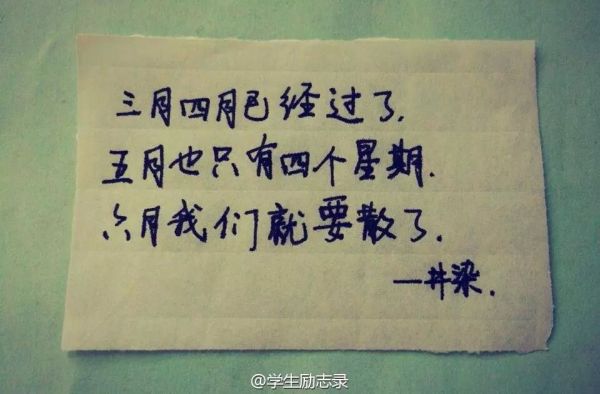 三月四月已经过了.
五月也只有四个星期.
六月我们就要散了.
—井染.
@学生励志录